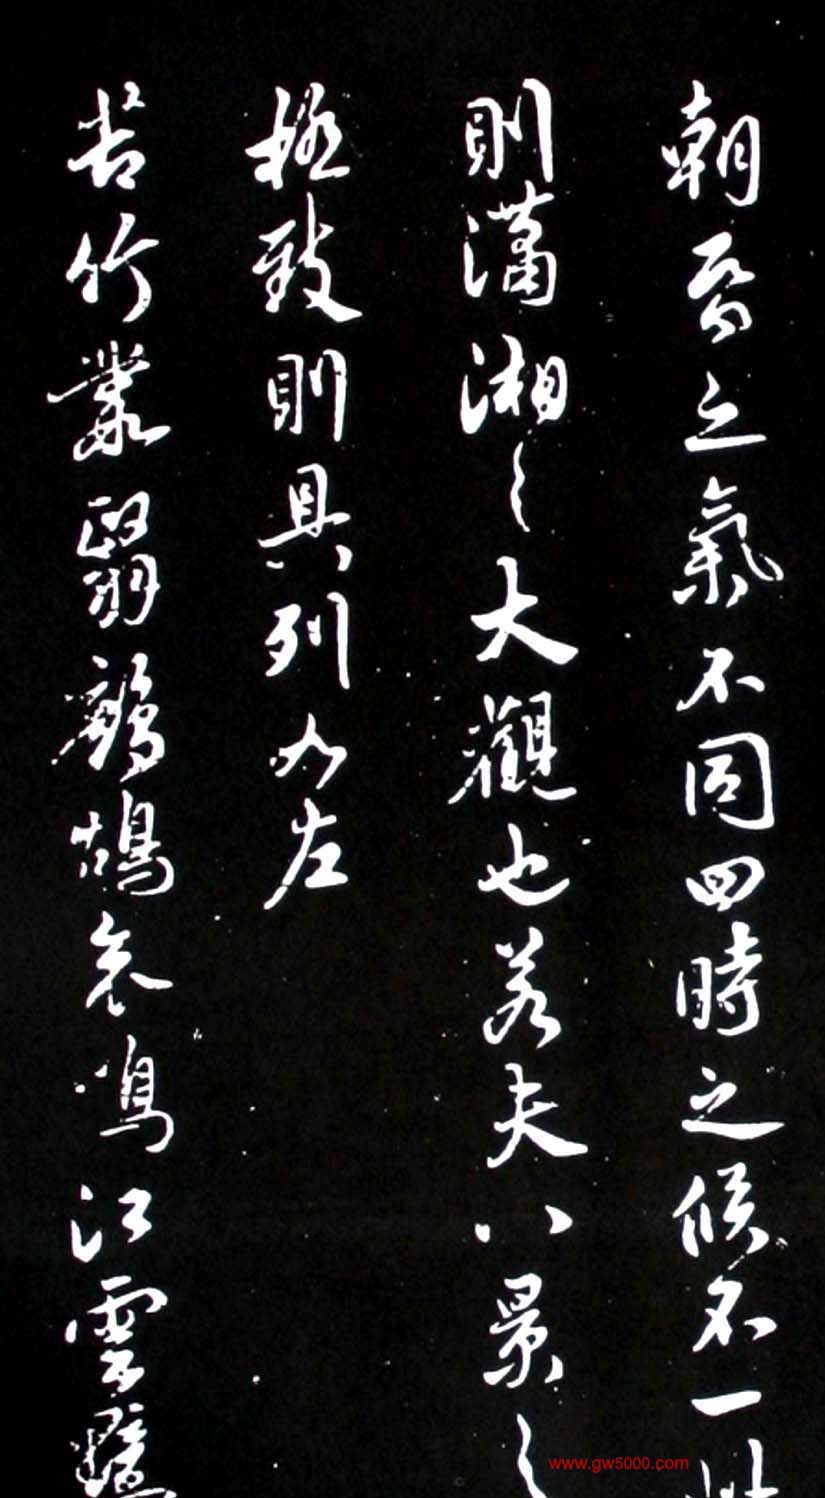 朝昏之氣不同四時之候不一此
則瀟湘之大觀也若夫八景之
極致則具列如左
苦竹叢翳鷓鴣哀鳴江雲黯
www.gw5000.com